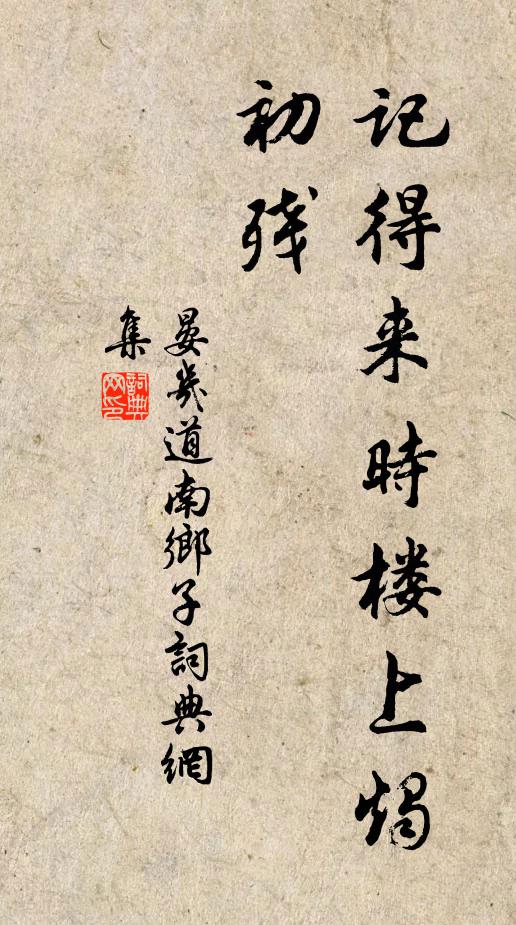 记得来時楼上燭
初残
晏幾道南鄉子詞典網
集
詞典
网印